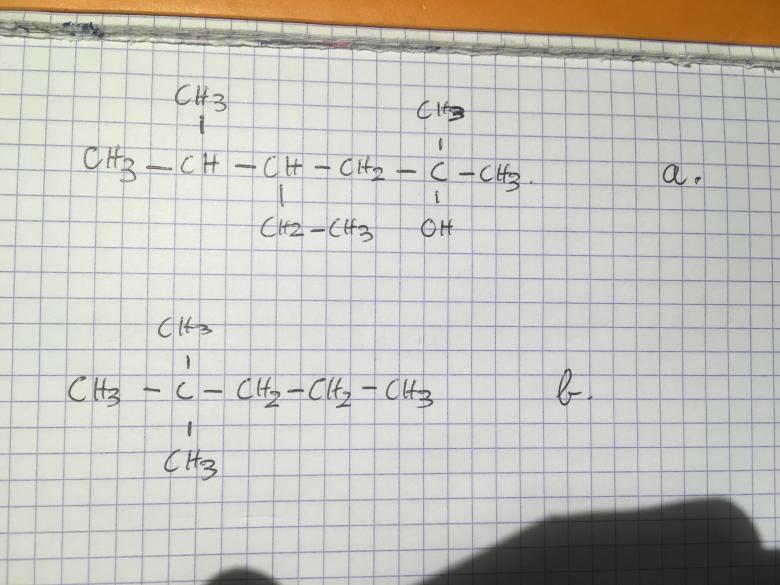 CH3 CH3
CH3 — CH — CH — CH2 — C — CH3. a.
CH2 — CH3 OH
CH3
CH3 — C — CH2 — CH2 — CH3 b.
CH3